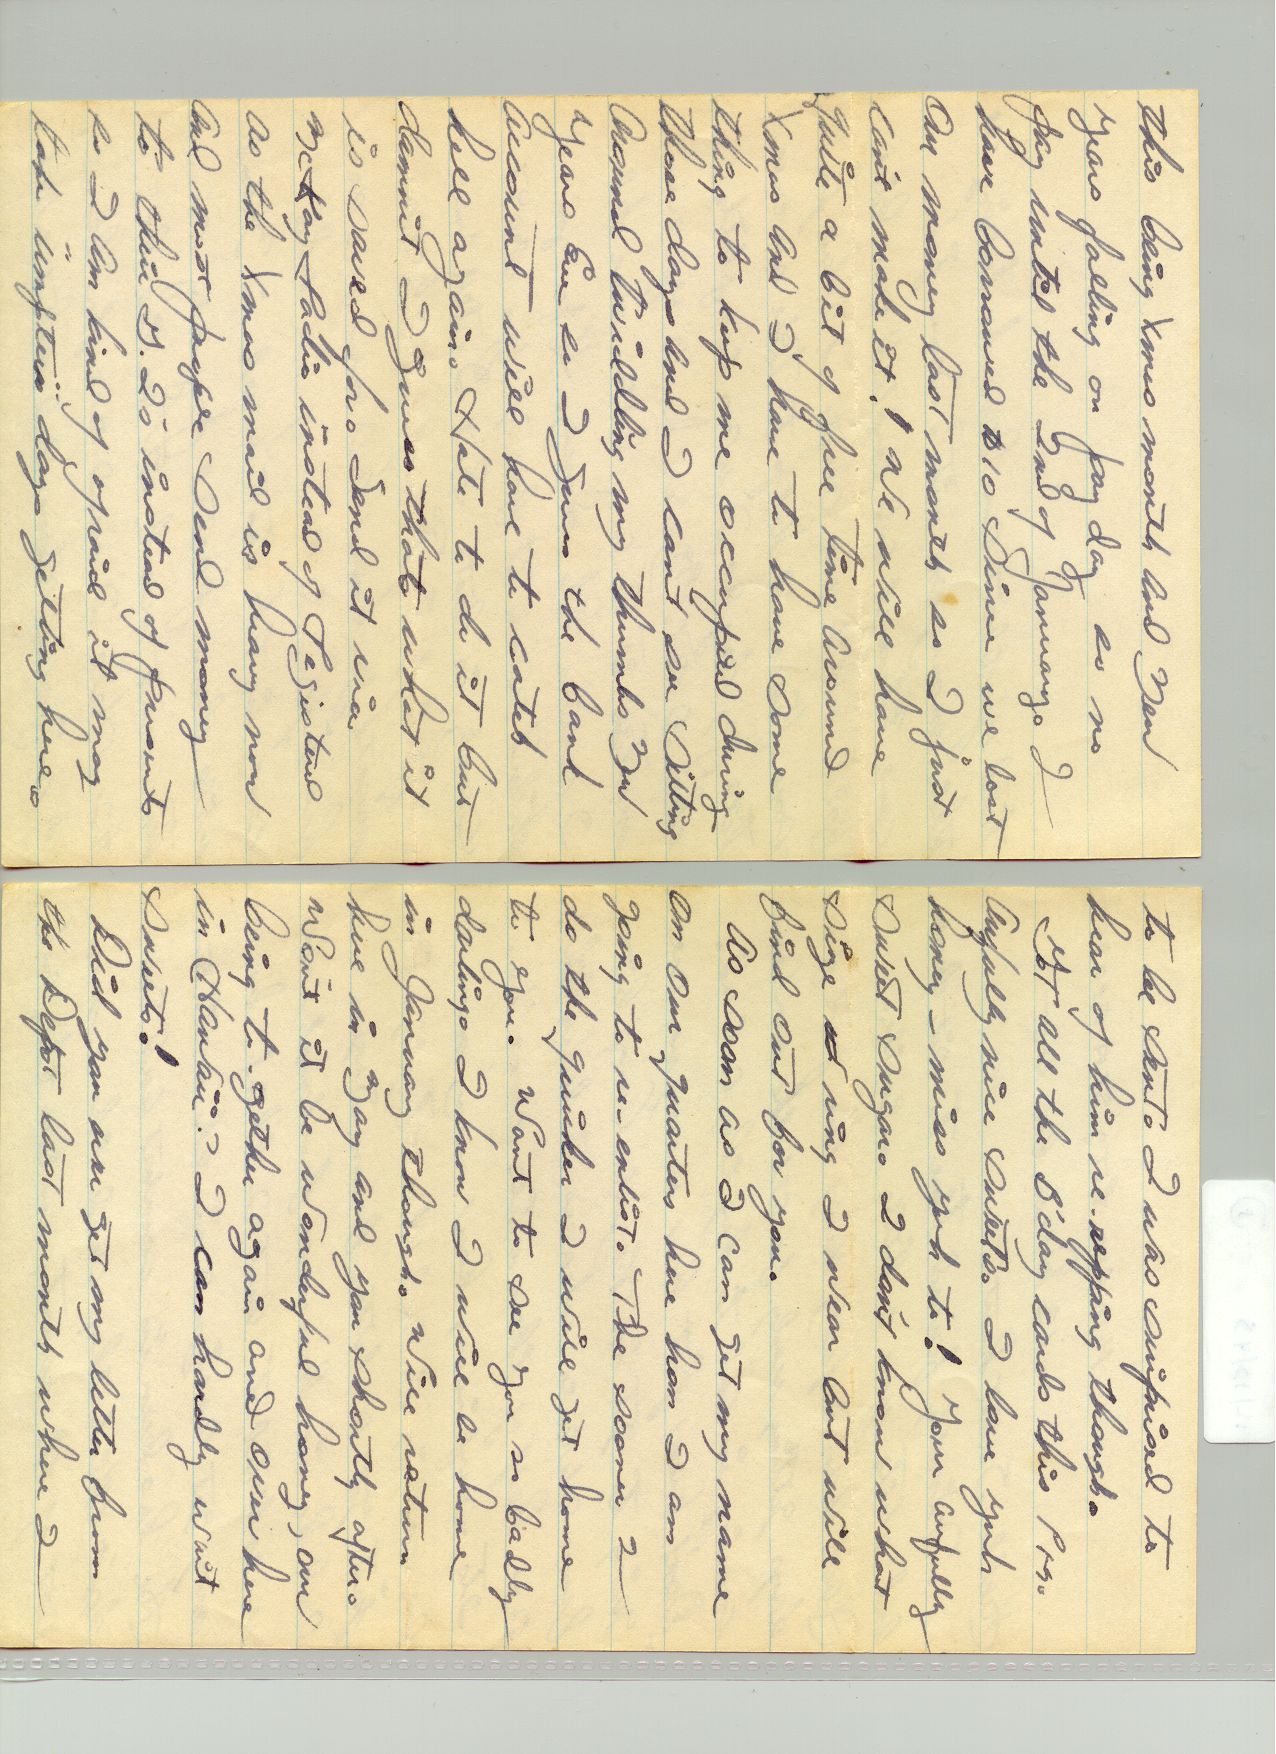 this being Xmas month and New
years falling on pay day so no
pay until the 2nd of January. I
have borrowed $10 since we lost
our money last month so I just
can't make it! We will have
quite a bit of free time around
Xmas and I have to have some
thing to keep me occupied during
those days and I cant see sitting
around twiddling my thumbs New
years Eve so I guess the bank
account will have to catch
hell again. Hate to do it but
dammit I guess thats what it
is saved for. Send it via
Mckay Radio instead of Registered
as the Xmas mail is heavy now
and most people send money
to their S.O.'s instead of presents
so I am kind of afraid it may
take umpteen days getting here.
to be sent. I was surprised to
hear of him re-upping though.
Got all the B'day cards this
Awfully nice sweets. I love yuh
honey - miss yuh to! Your awfully
sweet sugar. I don't know what
size ring I wear but will
find out for you.
As soon as I can get my name
on our quarters here hon I am
going to re-enlist. The sooner I
do the quicker I will get home
to you. Want to see you so badly
darling. I know I will be home
in January though. Will return
here in May and you shortly after.
Won't it be wonderful honey, our
being to-gether again and over here
in Hawaii? I can hardly wait
sweets!
Did you ever get my letter from
the Depot last month where I